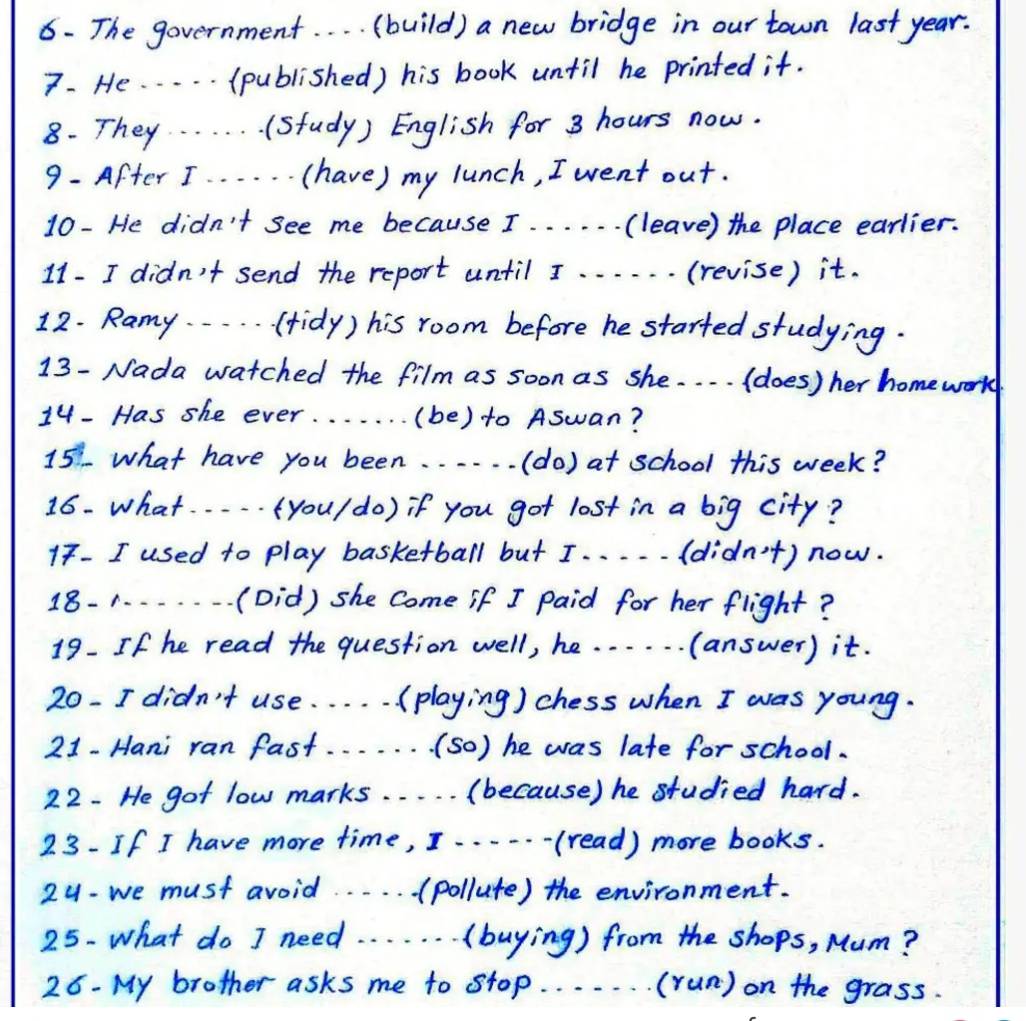 6- The government .... (build) a new bridge in our town last year.
7- He ..... (published) his book until he printed it.
8- They ....... (study) English for 3 hours now.
9- After I ...... (have) my lunch, I went out.
10- He didn't see me because I ...... (leave) the place earlier.
11- I didn't send the report until I ...... (revise) it.
12- Ramy ...... (tidy) his room before he started studying.
13- Nada watched the film as soon as she .... (does) her homework.
14- Has she ever ....... (be) to Aswan?
15- What have you been ...... (do) at school this week?
16- What ..... (you/do) if you got lost in a big city?
17- I used to play basketball but I ..... (didn't) now.
18- ........ (Did) she come if I paid for her flight?
19- If he read the question well, he ...... (answer) it.
20- I didn't use ...... (playing) chess when I was young.
21- Hani ran fast ....... (so) he was late for school.
22- He got low marks ..... (because) he studied hard.
23- If I have more time, I ...... (read) more books.
24- We must avoid ...... (pollute) the environment.
25- What do I need ....... (buying) from the shops, Mum?
26- My brother asks me to stop ....... (run) on the grass.